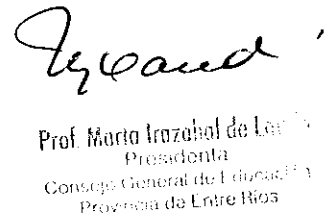 Prof. Marta Irazabal de
Presidenta
Consejo General de Educación
Provincia de Entre Ríos